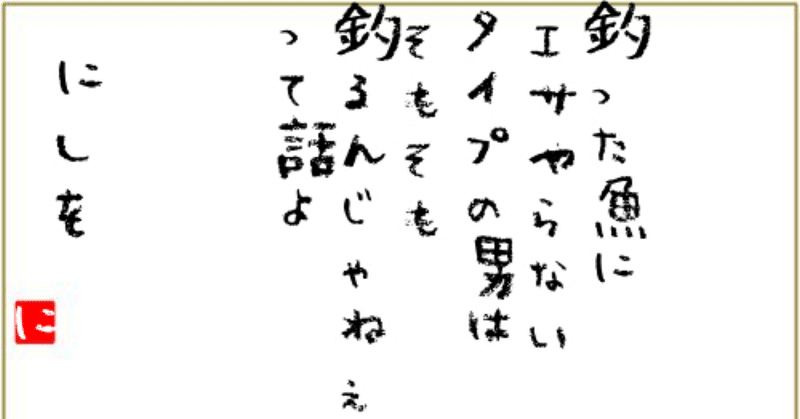 釣った魚に
エサやらない
タイプの男は
そもそも
釣るんじゃねぇ
って話よ
にしを
に